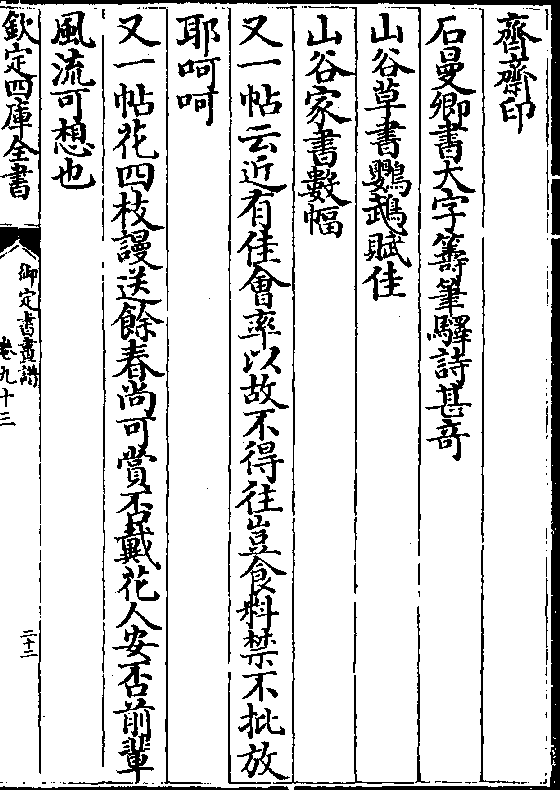 齊齋印
石曼卿書大字籌筆驛詩甚奇
山谷草書鸚鵡賦佳
山谷家書數幅
又一帖云近有佳會率以故不得往豈食料禁不批放
耶呵呵
又一帖花四枝謾送餘春尚可賞否戴花人安否前輩
風流可想也
欽定四庫全書
御定書畫譜
卷九十三
二十二